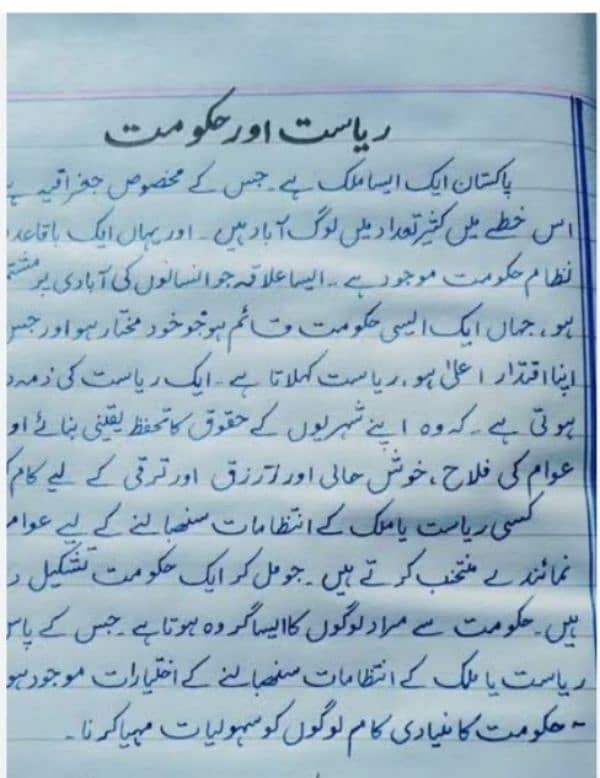 ریاست اور حکومت
پاکستان ایک ایسا ملک ہے۔ جس کے مخصوص جغرافیہ ہے
اس خطے میں کثیر تعداد میں لوگ آباد ہیں۔ اور یہاں ایک باقاعدہ
نظام حکومت موجود ہے۔ ایسا علاقہ جو انسانوں کی آبادی پر
ہو، جہاں ایک ایسی حکومت قائم ہو جو خود مختار ہو اور جس
اپنا اقتدار اعلیٰ ہو، ریاست کہلاتا ہے۔ ایک ریاست کی
ہوتی ہے۔ کہ وہ اپنے شہریوں کے حقوق کا تحفظ یقینی بنائے
عوام کی فلاح، خوش حالی اور اور ترقی کے لیے کام
کسی ریاست یا ملک کے انتظامات سنبھالنے کے لیے
نمائندے منتخب کرتے ہیں۔ جو مل کر ایک حکومت تشکیل
ہیں۔ حکومت سے مراد لوگوں کا ایسا گروہ ہوتا ہے۔ جس کے پاس
ریاست یا ملک کے انتظامات سنبھالنے کے اختیارات موجود
۔ حکومت کا بنیادی کام لوگوں کو سہولیات مہیا کرنا۔